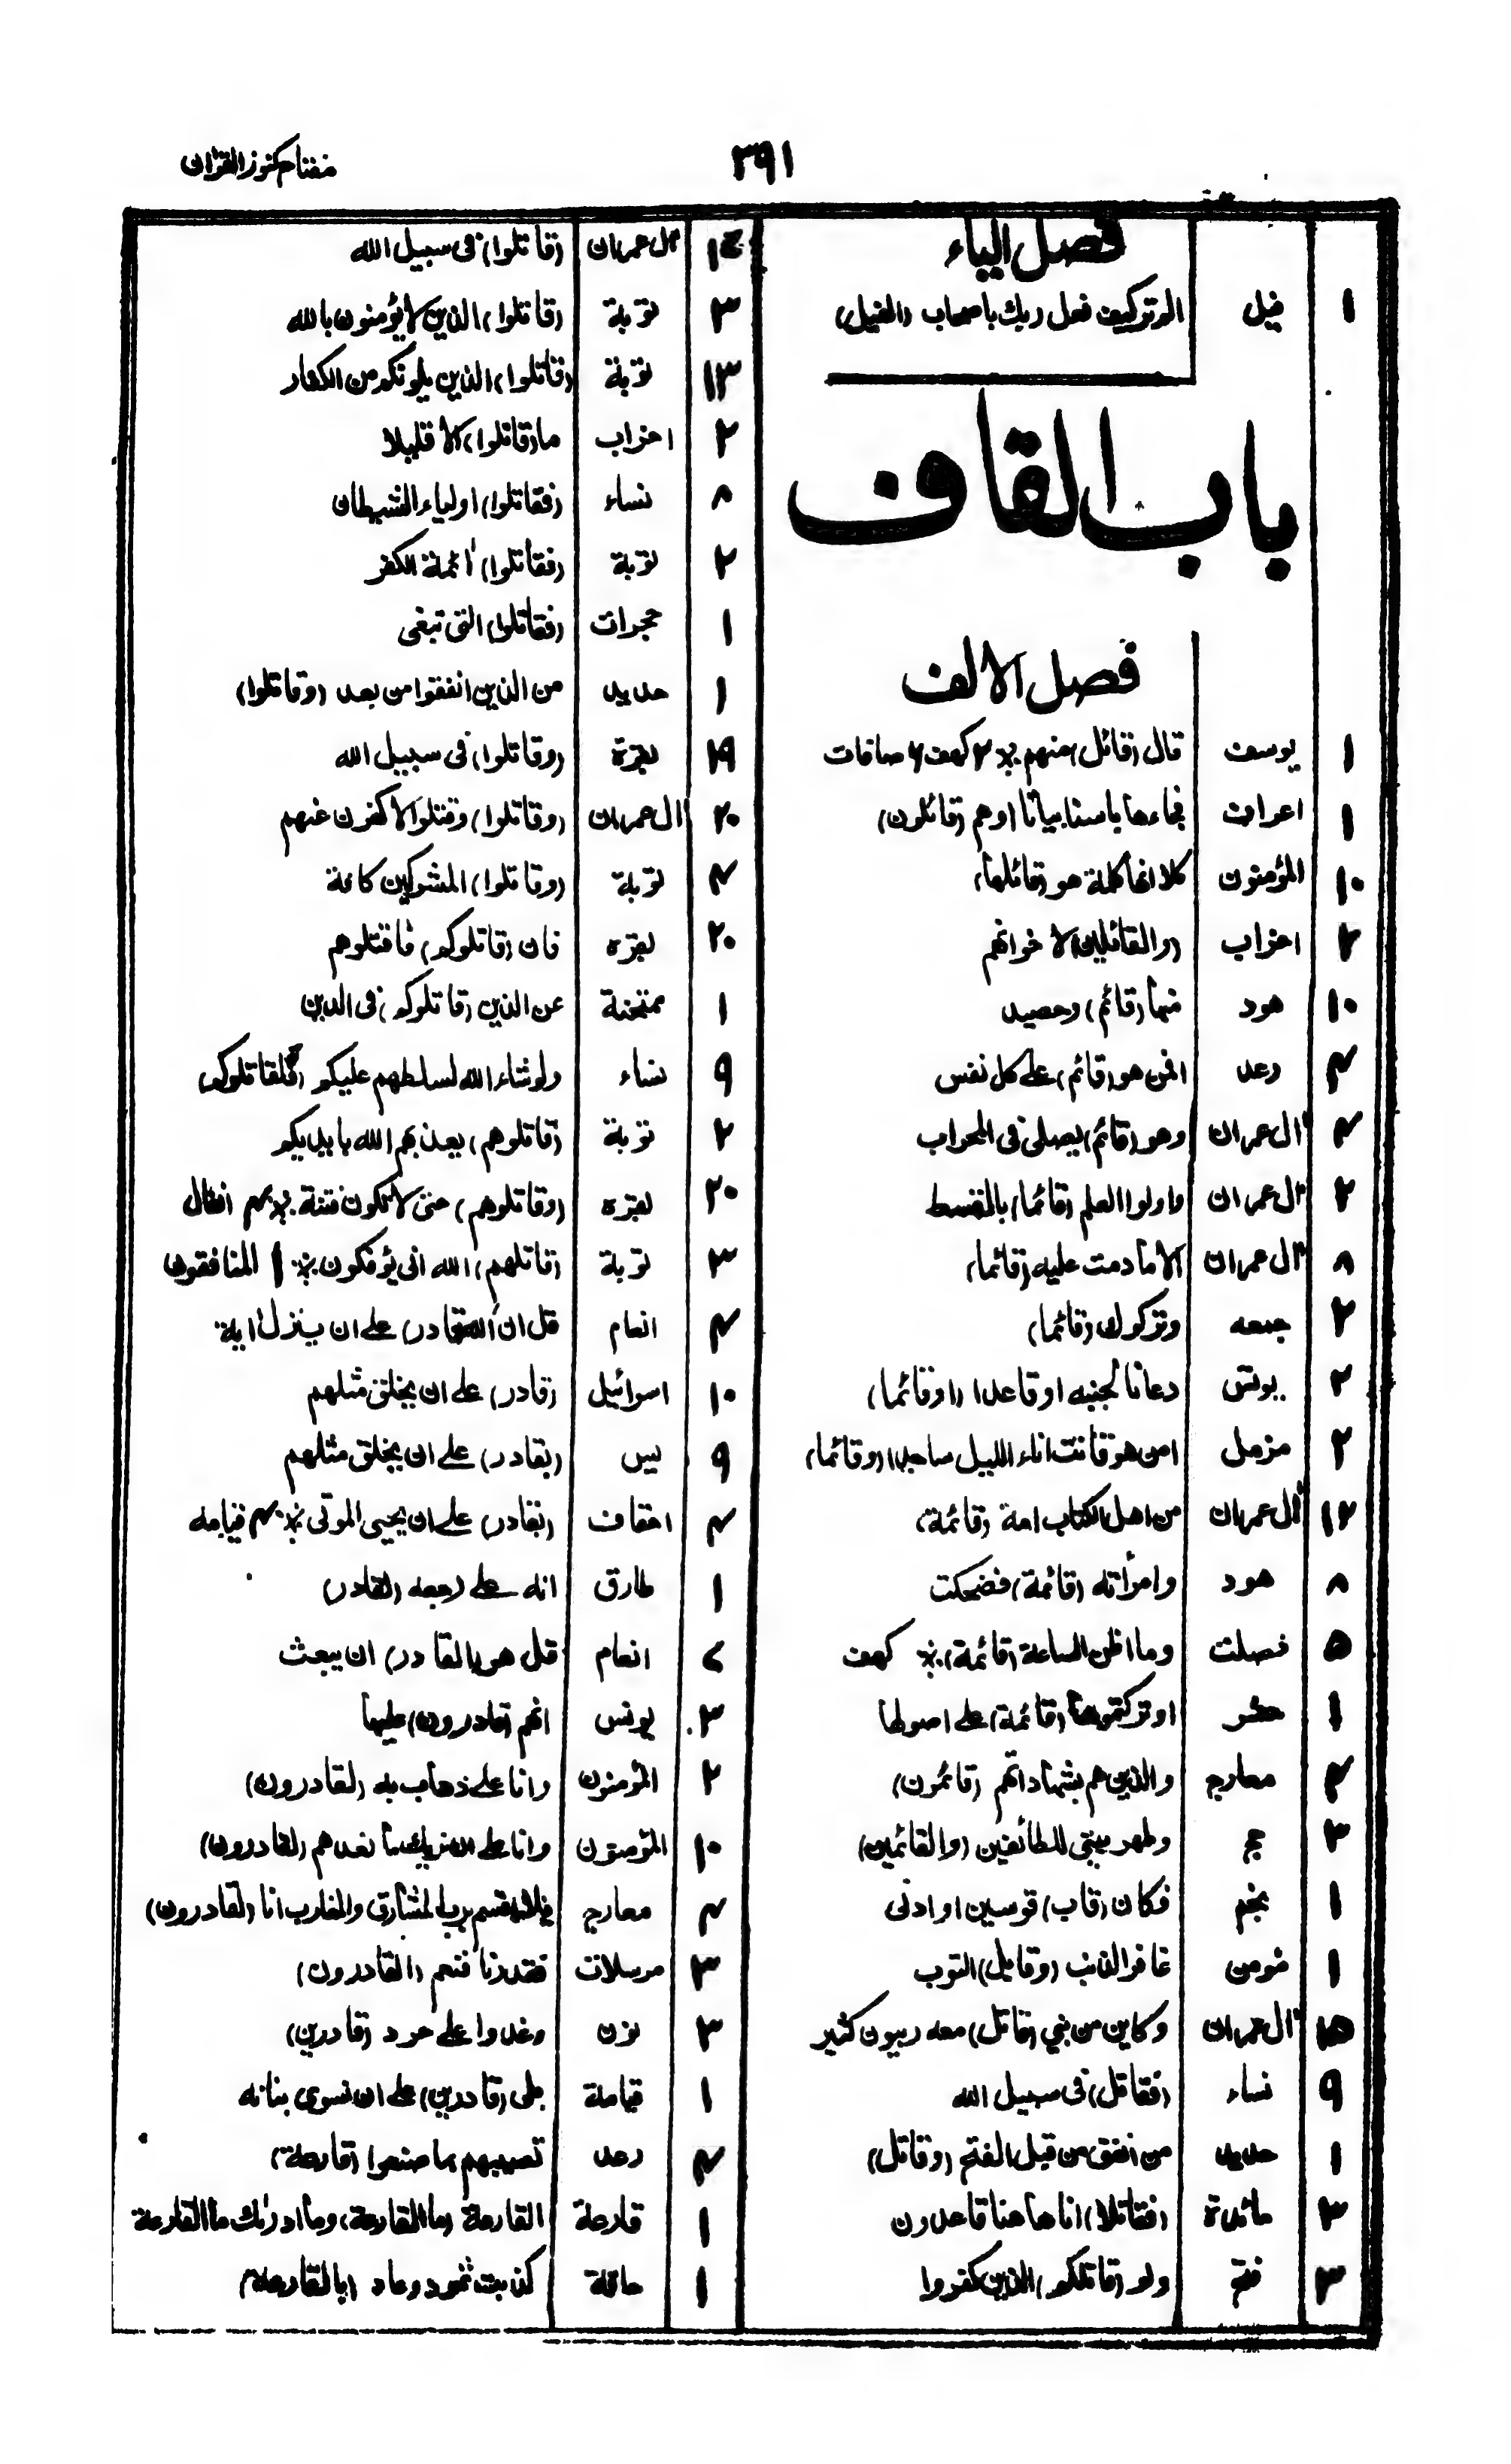 مفتاح كنوز القرآن
٣٩١
فصل الياء
١ فيل الم تر كيف فعل ربك باصحاب (الفيل)
باب القاف
فصل الالف
١ يوسف قال (قائل) منهم ٪ ٢ كهف ٢ صافات
١ اعراف فجاءها باسنا بياتا اوهم (قائلون)
١٠ المؤمنون كلا انها كلمة هو (قائلها)
٢ احزاب (والقائلين) لاخوانهم
١٠ هود منها (قائم) وحصيد
٤ رعد افمن هو (قائم) على كل نفس
٤ آل عمران وهو (قائم) يصلى فى المحراب
٢ آل عمران واولوا العلم (قائما) بالقسط
٨ آل عمران الا ما دمت عليه (قائما)
٢ جمعه وتركوك (قائما)
٢ يونس دعانا لجنبه اوقاعدا (اوقائما)
٢ مزمل امن هو قانت اناء الليل ساجدا (وقائما)
١٢ آل عمران من اهل الكتاب امة (قائمة)
٨ هود وامرأته (قائمة) فضحكت
٥ فصلت وما اظن الساعة (قائمة) ٪ كهف
١ حشر اوتركتموها (قائمة) على اصولها
٢ معارج والذين هم بشهاداتهم (قائمون)
٣ حج وطهر بيتى للطائفين (والقائمين)
١ نجم فكان (قاب) قوسين اوادنى
١ مؤمن غافر الذنب (وقابل) التوب
١٥ آل عمران وكاين من نبي (قاتل) معه ربيون كثير
٩ نساء (فقاتل) فى سبيل الله
١ حديد من انفق من قبل الفتح (وقاتل)
٣ مائدة (فقاتلا) انا هاهنا قاعدون
٣ فتح ولو (قاتلكم) الذين كفروا
آل عمران (قاتلوا) فى سبيل الله
٣ توبة (قاتلوا) الذين لا يؤمنون بالله
١٣ توبة (قاتلوا) الذين يلونكم من الكفار
٢ احزاب ما (قاتلوا) الا قليلا
٨ نساء (فقاتلوا) اولياء الشيطان
٢ توبة (فقاتلوا) أئمة الكفر
١ حجرات (فقاتلوا) التى تبغى
١ حديد من الذين انفقوا من بعد (وقاتلوا)
١٩ بقرة (وقاتلوا) فى سبيل الله
٢٠ آل عمران (وقاتلوا) وقتلوا لاكفرن عنهم
٤ توبة (وقاتلوا) المشركين كافة
٢٠ بقره فان (قاتلوكم) فاقتلوهم
١ ممتحنة عن الذين (قاتلوكم) فى الدين
٩ نساء ولو شاء الله لسلطهم عليكم (فلقاتلوكم)
٢ توبة (قاتلوهم) يعذبهم الله بايديكم
٢٠ بقره (وقاتلوهم) حتى لا تكون فتنة ٪ ٤ انفال
٣ توبة (قاتلهم) الله انى يؤفكون ٪ ١ المنافقون
٤ انعام قل ان الله (قادر) على ان ينزل اية
١٠ اسرائيل (قادر) على ان يخلق مثلهم
٩ يس (بقادر) على ان يخلق مثلهم
٤ احقاف (بقادر) على ان يحيى الموتى ٪ ٤ قيامه
١ طارق انه على رجعه (لقادر)
٧ انعام قل هو (القادر) ان يبعث
٣ يونس انهم (قادرون) عليها
٢ المؤمنون وانا على ذهاب به (لقادرون)
١٠ المؤمنون وانا على ان نريك ما نعدهم (لقادرون)
٤ معارج فلا اقسم برب المشارق والمغارب انا (لقادرون)
٣ مرسلات فقدرنا فنعم (القادرون)
٣ نون وغدوا على حرد (قادرين)
١ قيامة بلى (قادرين) على ان نسوى بنانه
٤ رعد تصيبهم بما صنعوا (قارعة)
١ قارعة القارعة (ما القارعة) وما ادرىك ما القارعة
١ حاقة كذبت ثمود وعاد (بالقارعة)